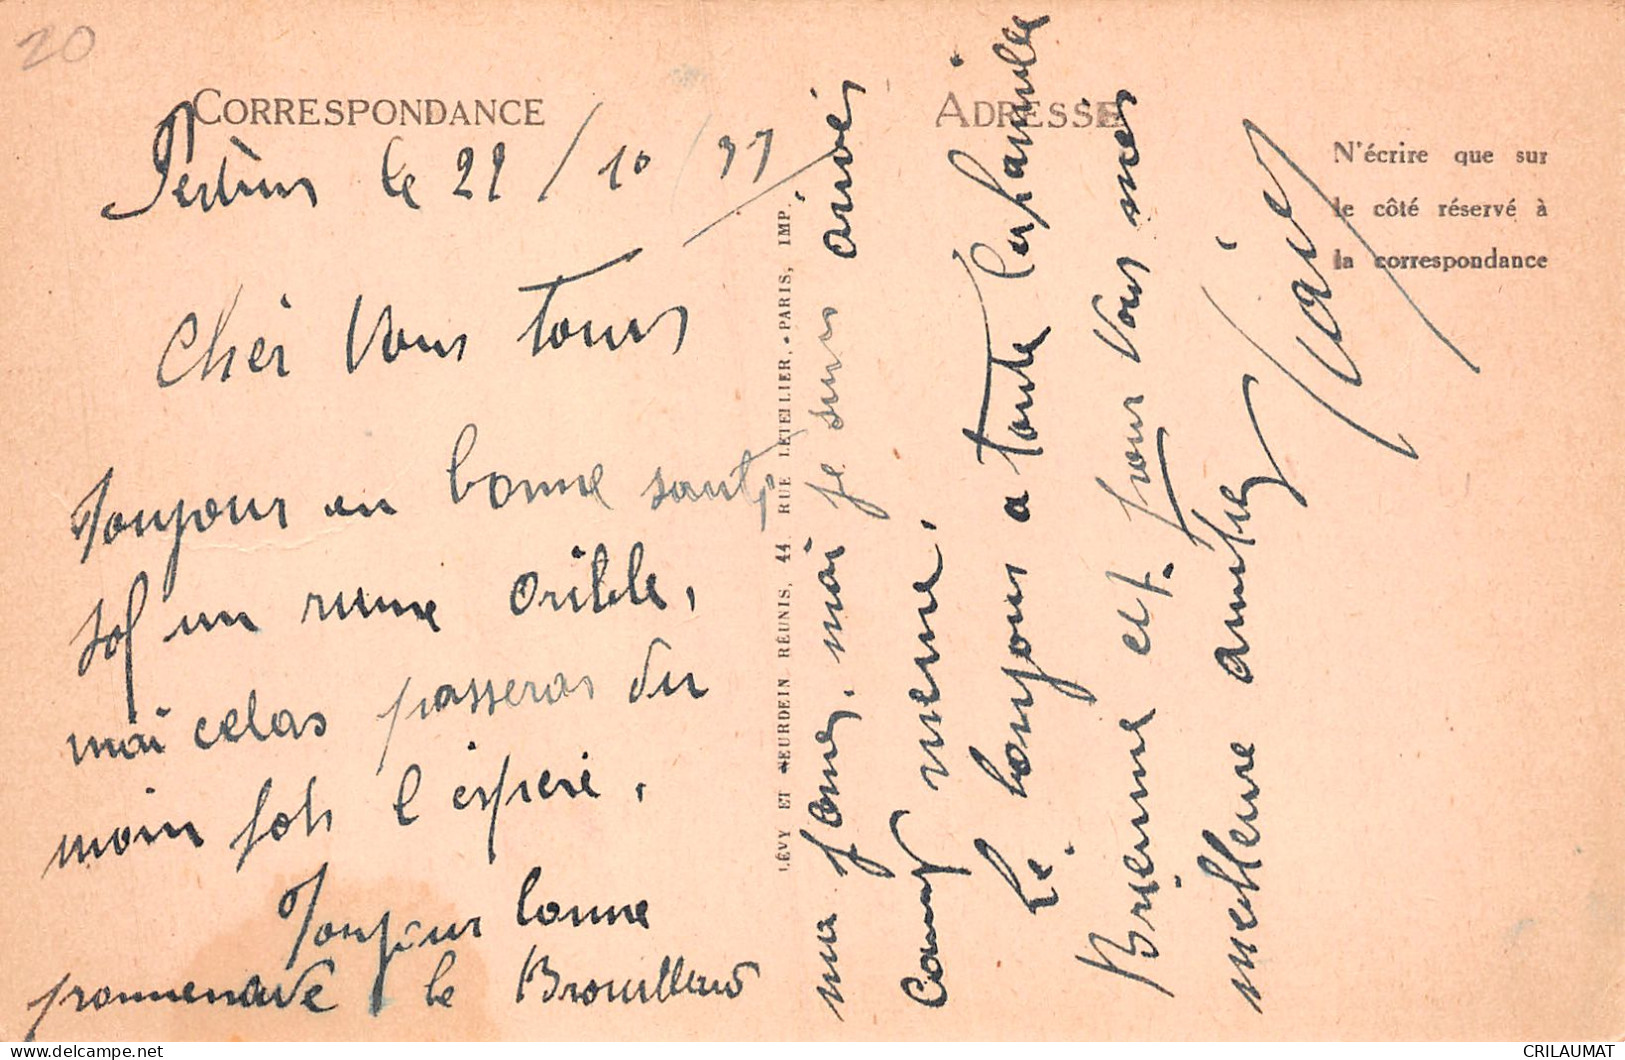 20
CORRESPONDANCE
le 22/10/37
Cher Vous Tous
Toujour en bonne santé
sof un rume orible,
mai celas passeras du
moin foh l'esperé,
Toujour bonne
promenade le Brouillard
LÉVY ET NEURDEIN RÉUNIS, 44 RUE LETELLIER, • PARIS, IMP.
ma, mai je suis arivés
meme.
Le bonjour a toute la famille
Brienne et pour Vous mes
meilleure amitié
ADRESSE
N'écrire que sur
le côté réservé à
la correspondance
CRILAUMAT